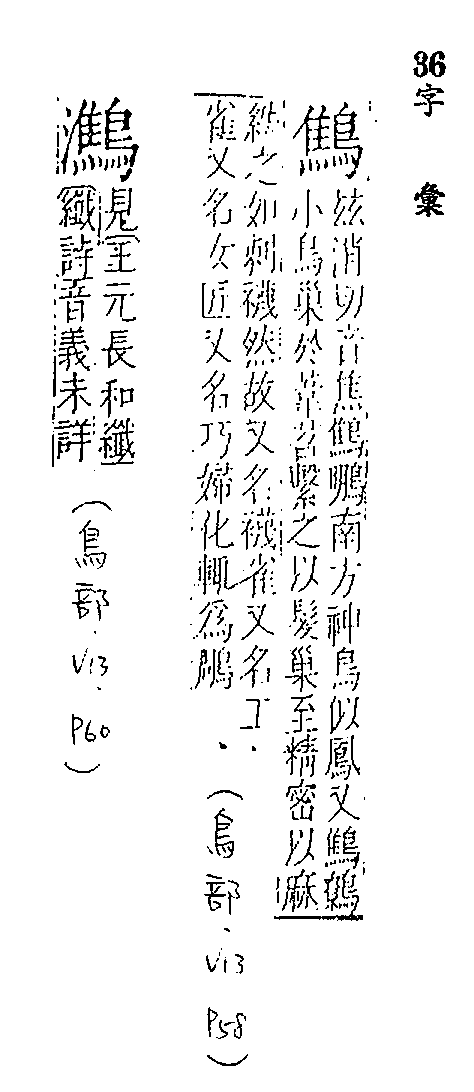 36字 彙
鷦
玆消切音焦鷦䳟南方神鳥似鳳又鷦鷯
小鳥巢於葦苕繫之以髮巢至精密以麻
紩之如刺襪然故又名襪雀又名工
雀又名女匠又名巧婦化輒爲鵰
(鳥部.V13 P58)
見王元長和纖
纖詩音義未詳
(鳥部.V13.P60)